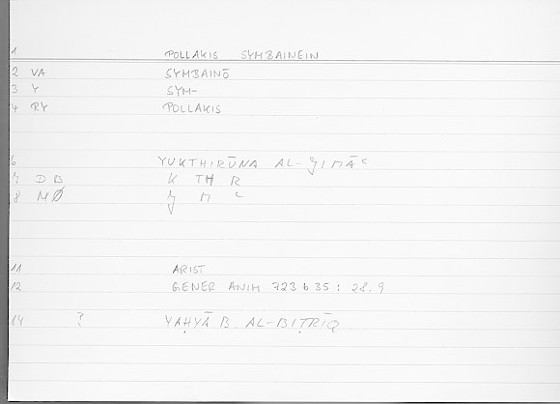 1 POLLAKIS SYMBAINEIN
2 VA SYMBAINŌ
3 Y SYM-
4 RY POLLAKIS
6 YUKTHIRŪNA AL-ǦIMĀʿ
7 DB K TH R
8 MØ Ǧ M ʿ
11 ARIST
12 GENER ANIM 723 b 35 : 28.9
14 ? YAḤYĀ B. AL-BIṬRĪQ